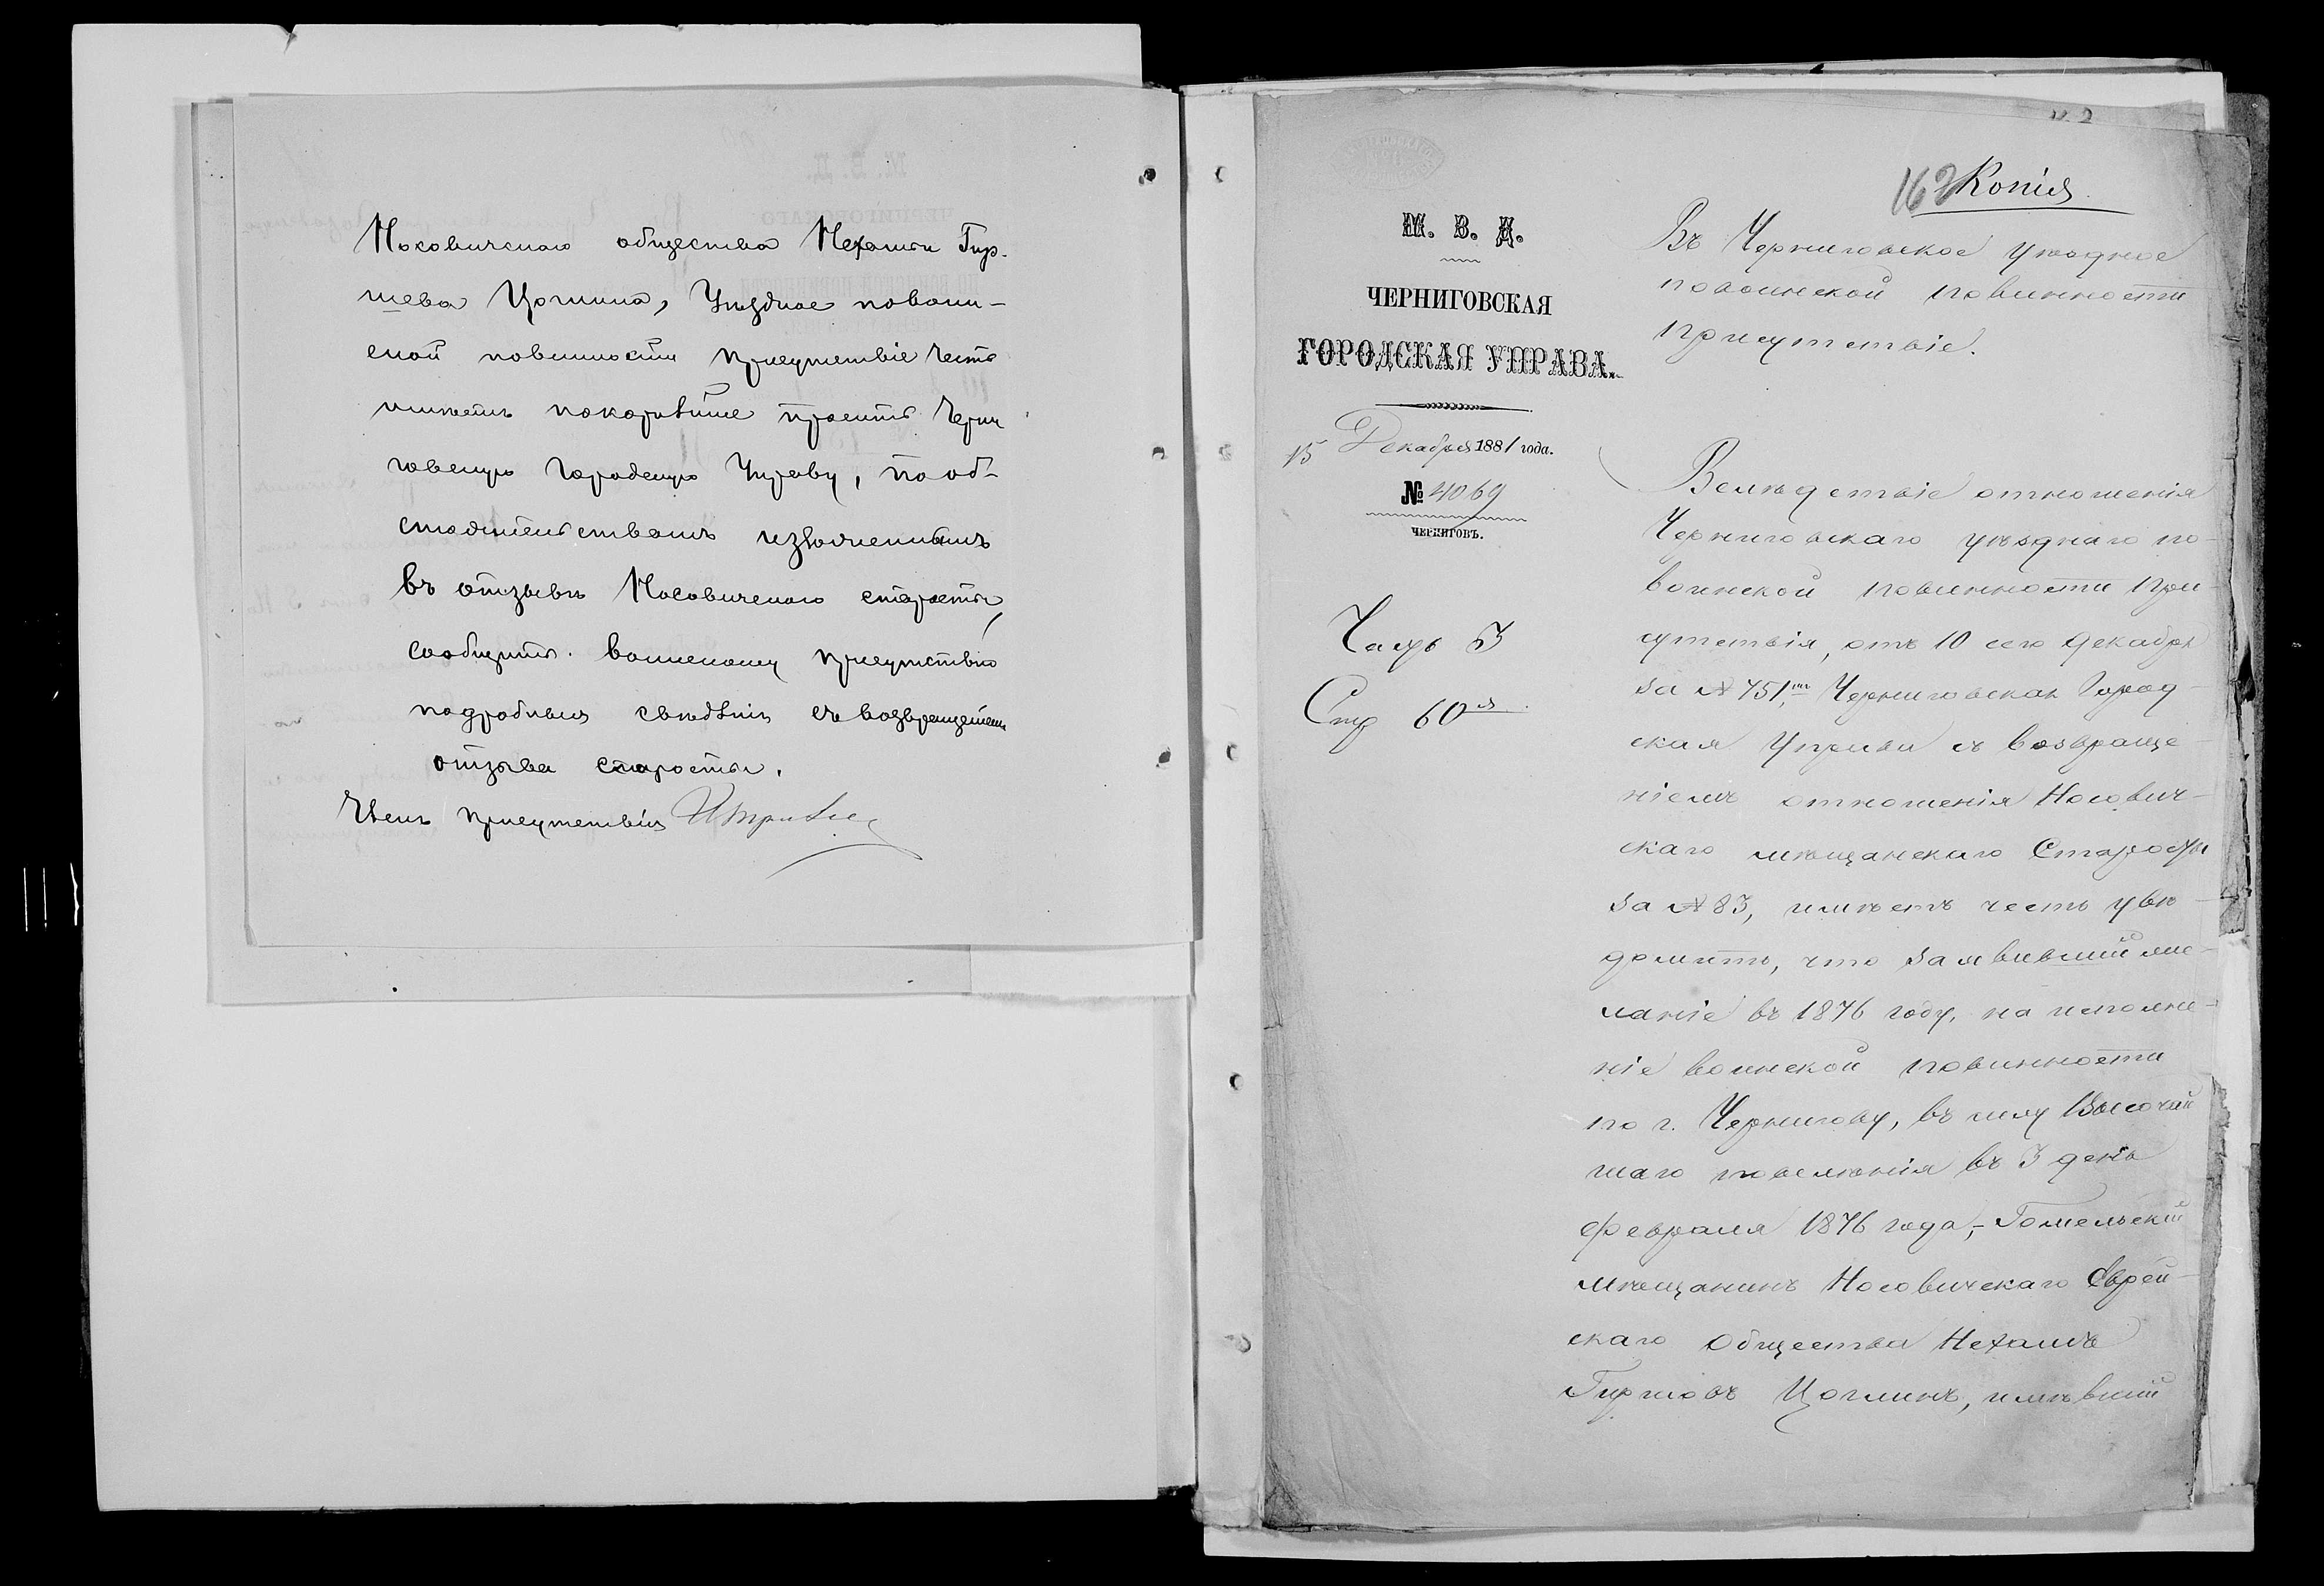 Носовичскаго общества Нехамы Гир-
шева Цоглина, Уѣздное повоин-
ской повинности присутствіе честь
имѣетъ покорнѣйше просить Черни
говскую Городскую Управу, по об-
стоятельствамъ изложеннымъ
въ отзывѣ Носовичскаго старосты,
сообщить воинскому присутствію
подробныя свѣдѣнія съ возвращеніемъ
отзыва старосты.
Членъ присутствія
163 Копія
М. В. Д.
ЧЕРНИГОВСКАЯ
ГОРОДСКАЯ УПРАВА.
15 Декабря 1881 года.
№ 4069
ЧЕРНИГОВЪ.
Стр 60я
Въ Черниговское уѣздное
повоинской повинности
присутствіе.
Вслѣдствіе отношенія
Черниговскаго уѣзднаго по-
воинской повинности при-
сутствія, отъ 10 сего декабря
за № 751, Черниговская Город-
ская Управа съ возвраще-
ніемъ отношенія Носович-
скаго мѣщанскаго Старосты
за № 83, имѣетъ честь увѣ-
домить, что заявившій же-
ланіе въ 1876 году, на исполне-
ніе воинской повинности
по г. Чернигову, въ силу Высочай
шаго повелѣнія въ 3 день
февраля 1876 года,- Гомельскій
мѣщанинъ Носовичскаго Еврей-
скаго Общества Нехамъ
Гиршовъ Цоглинъ, имѣвшій